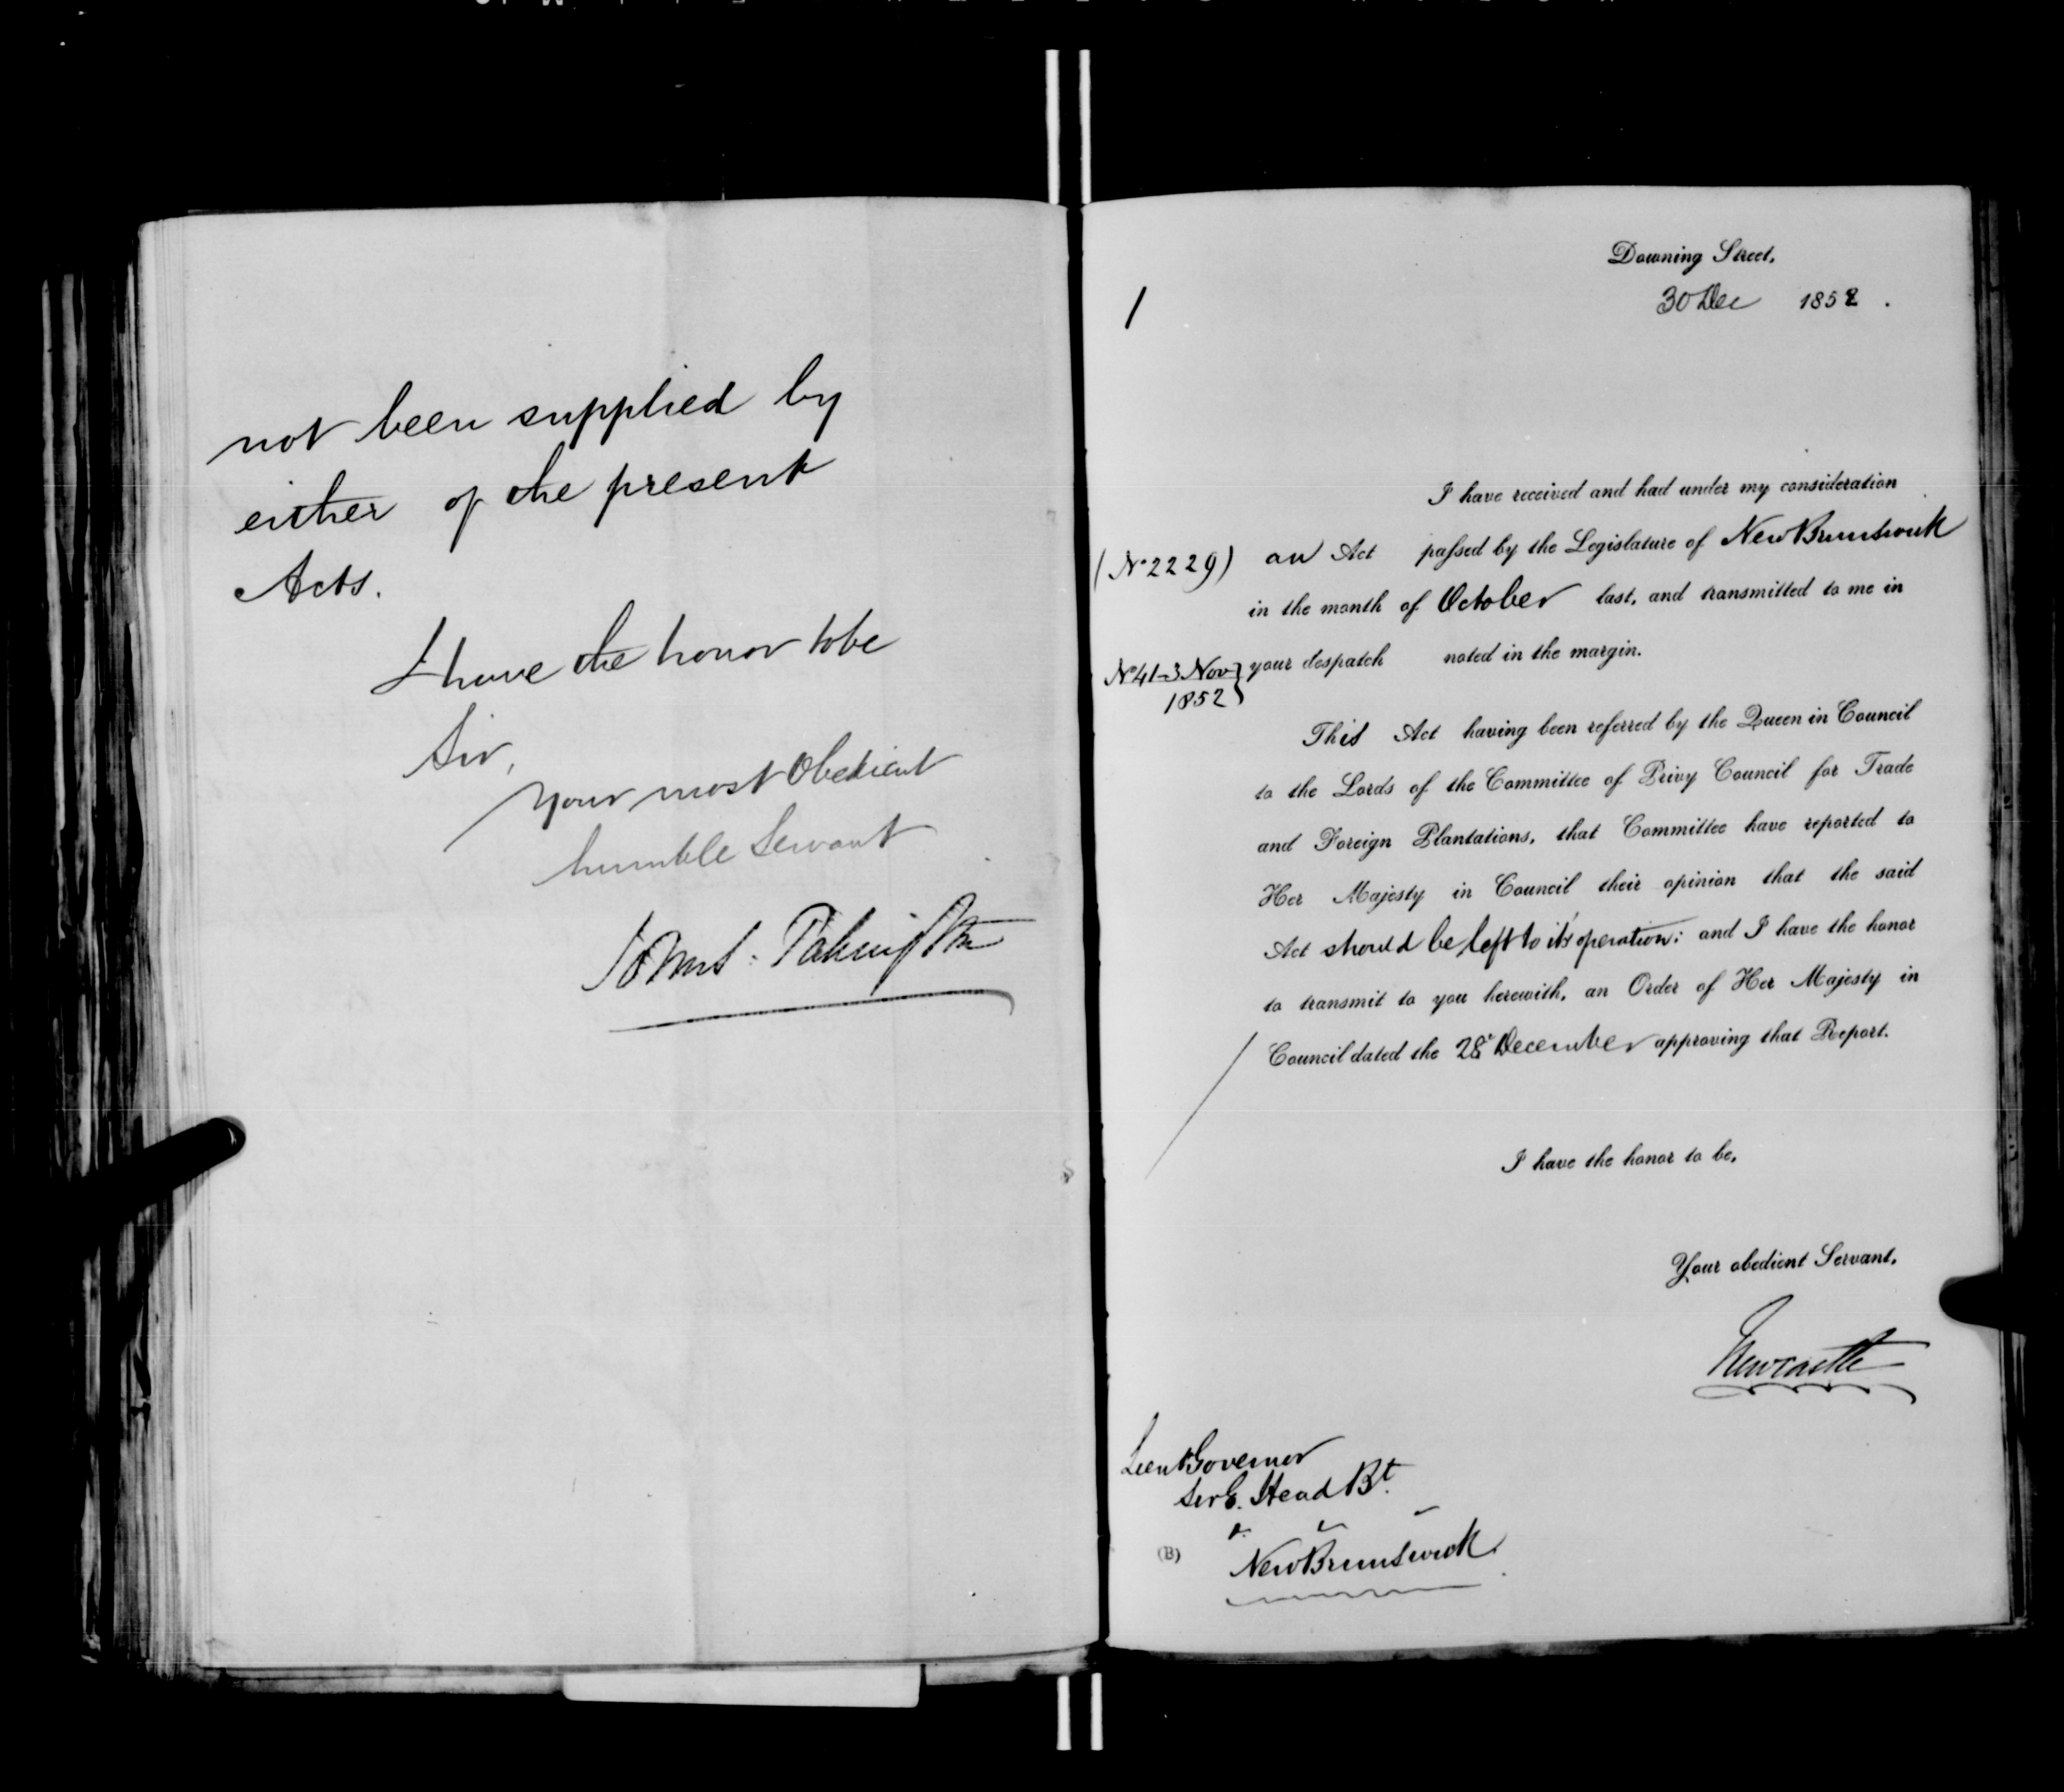 not been supplied by
either of the present
Acts.
I have the honor to be
Sir,
Your most Obedient
humble Servant
John S. Pakington
1
Downing Street,
30 Dec 1852.
I have received and had under my consideration
(No 2229) an Act passed by the Legislature of New Brunswick
in the month of October last, and transmitted to me in
No 41-3 Nov your despatch noted in the margin.
1852
This Act having been referred by the Queen in Council
to the Lords of the Committee of Privy Council for Trade
and Foreign Plantations, that Committee have reported to
Her Majesty in Council their opinion that the said
Act should be left to it's operation: and I have the honor
to transmit to you herewith, an Order of Her Majesty in
Council dated the 28 December approving that Report.
I have the honor to be,
Your obedient Servant,
Newcastle
Lieut Governor
Sir E. Head Bt.
(B) New Brunswick